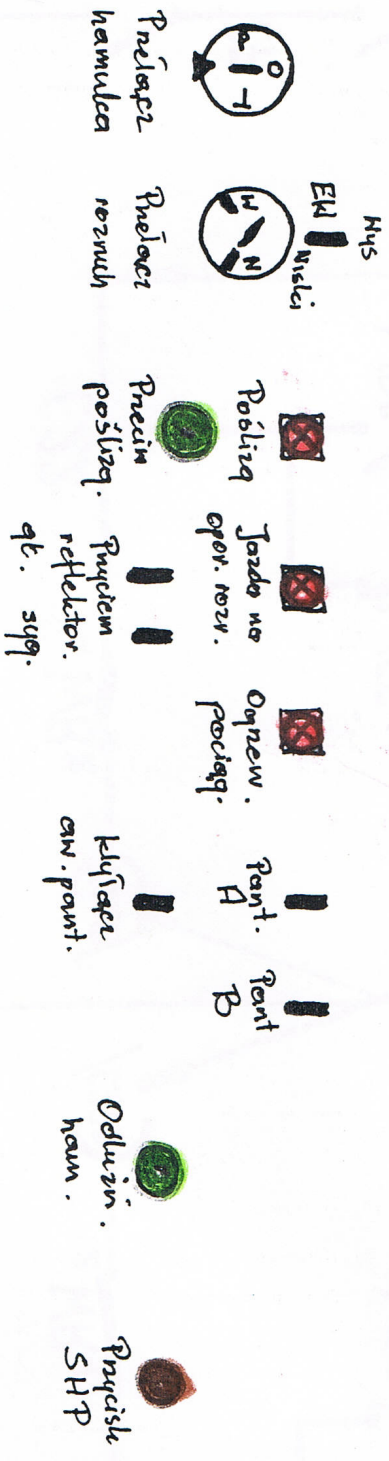 P O T
Przełącz
hamulca
Wys
EW
Niski
W N
Przełącz
rozruch
Poślizg
Przeciw
poślizg.
Jazda na
opor. rozr.
Przyciem
reflektor.
gł. syg.
Ogrzew.
pociąg.
Pant.
A
Pant
B
Wyłącz
aw. pant.
Odluźń.
ham.
Przycisk
SHP